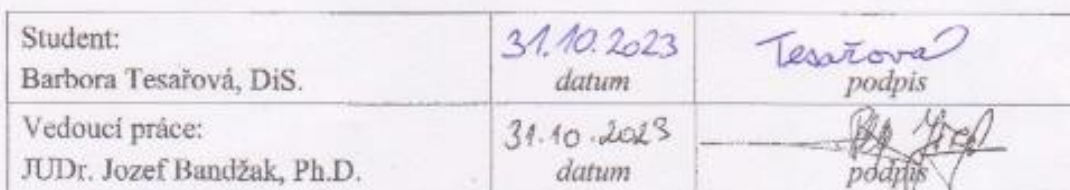 Student:
Barbora Tesařová, DiS.
31.10.2023
datum
Tesařová
podpis
Vedoucí práce:
JUDr. Jozef Bandžak, Ph.D.
31.10.2023
datum
podpis